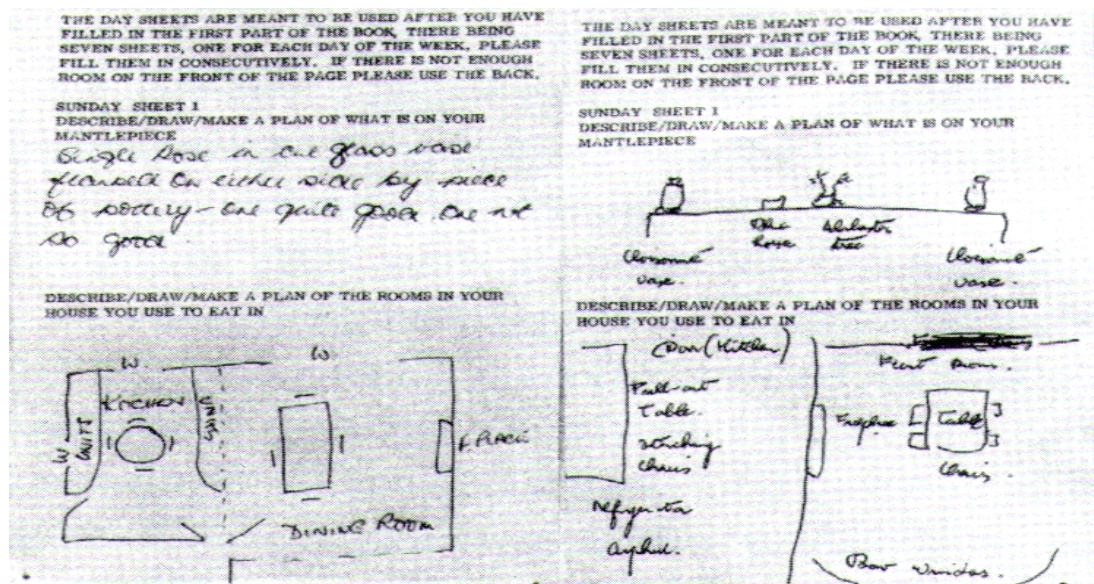 THE DAY SHEETS ARE MEANT TO BE USED AFTER YOU HAVE
FILLED IN THE FIRST PART OF THE BOOK, THERE BEING
SEVEN SHEETS, ONE FOR EACH DAY OF THE WEEK. PLEASE
FILL THEM IN CONSECUTIVELY. IF THERE IS NOT ENOUGH
ROOM ON THE FRONT OF THE PAGE PLEASE USE THE BACK.
SUNDAY SHEET 1
DESCRIBE/DRAW/MAKE A PLAN OF WHAT IS ON YOUR
MANTLEPIECE
Single Rose in cut glass vase
flanked on either side by piece
of pottery - one quite good one not
so good.
DESCRIBE/DRAW/MAKE A PLAN OF THE ROOMS IN YOUR
HOUSE YOU USE TO EAT IN
W.
W
KITCHEN
UNITS
W
UNITS
F. PLACE
DINING ROOM
THE DAY SHEETS ARE MEANT TO BE USED AFTER YOU HAVE
FILLED IN THE FIRST PART OF THE BOOK, THERE BEING
SEVEN SHEETS, ONE FOR EACH DAY OF THE WEEK. PLEASE
FILL THEM IN CONSECUTIVELY. IF THERE IS NOT ENOUGH
ROOM ON THE FRONT OF THE PAGE PLEASE USE THE BACK.
SUNDAY SHEET 1
DESCRIBE/DRAW/MAKE A PLAN OF WHAT IS ON YOUR
MANTLEPIECE
Cloisonné
vase.
Horse
Alabaster
tree
Cloisonné
vase.
DESCRIBE/DRAW/MAKE A PLAN OF THE ROOMS IN YOUR
HOUSE YOU USE TO EAT IN
Door (Kitchen)
Pull-out
Table.
Stacking
Chairs
Refrigerator
Front Room.
Fireplace
Table
Chairs.
Bow Window.